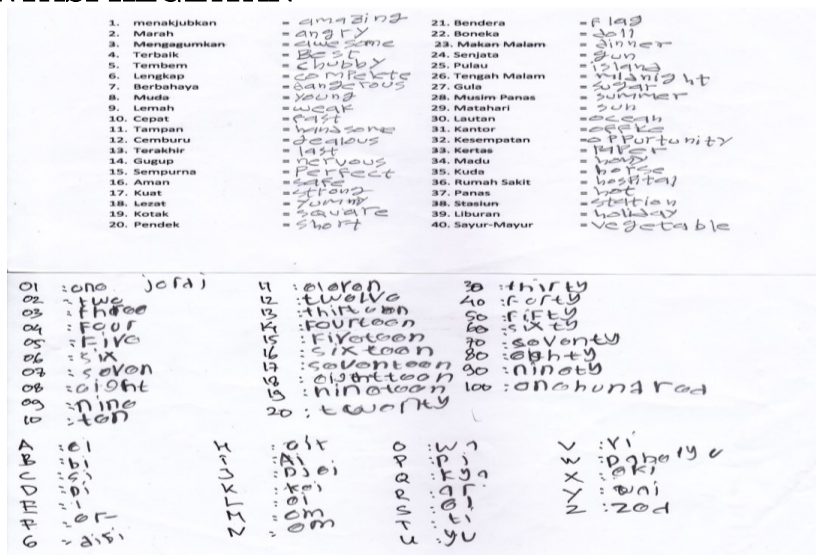 1. menakjubkan = amazing
2. Marah = angry
3. Mengagumkan = awesome
4. Terbaik = Best
5. Tembem = chubby
6. Lengkap = compekte
7. Berbahaya = dangerous
8. Muda = young
9. Lemah = weak
10. Cepat = fast
11. Tampan = handsome
12. Cemburu = Jealous
13. Terakhir = last
14. Gugup = nervous
15. Sempurna = Perfect
16. Aman = safe
17. Kuat = strong
18. Lezat = yummy
19. Kotak = square
20. Pendek = short
21. Bendera = Flag
22. Boneka = doll
23. Makan Malam = dinner
24. Senjata = gun
25. Pulau = island
26. Tengah Malam = midnight
27. Gula = sugar
28. Musim Panas = summer
29. Matahari = sun
30. Lautan = ocean
31. Kantor = offke
32. Kesempatan = oPPurtunity
33. Kertas = PaPer
34. Madu = hony
35. Kuda = horse
36. Rumah Sakit = hospital
37. Panas = hot
38. Stasiun = station
39. Liburan = holiday
40. Sayur-Mayur = vegetable
01 : one jordj
02 : two
03 : three
04 : Four
05 : Five
06 : six
07 : seven
08 : eight
09 : nine
10 : ten
11 : eleven
12 : twelve
13 : thirteen
14 : Fourteen
15 : Fiveteen
16 : sixteen
17 : seventeen
18 : eighteen
19 : nineteen
20 : twenty
30 : thirty
40 : Forty
50 : FiFty
60 : sixty
70 : seventy
80 : eghty
90 : ninety
100 : onehundred
A : ei
B : bi
C : si
D : Di
E : i
F : eF
G : djsi
H
I : Ai
J : Djei
K : kei
L : el
M : em
N : em
O
P : Pi
Q : kyu
R : ar
S : es
T : ti
U : yu
V : vi
W : Dabelyu
X : eks
Y : wai
Z : zed